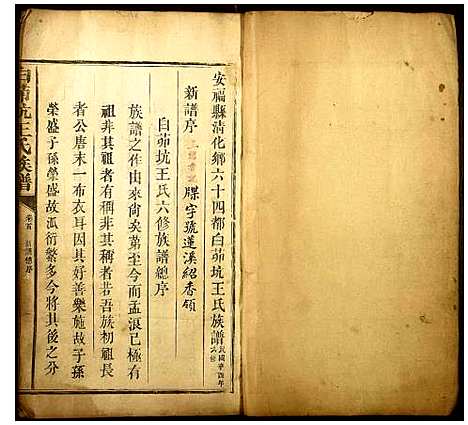 安福縣清化鄉六十四都白茆坑王氏族譜民國辛酉年六修
新譜序
牒字號蓮溪紹香領
白茆坑王氏六修族譜總序
族譜之作由來尚矣第至今而孟浪已極有
祖非其祖者有稱非其稱者若吾族初祖長
者公唐末一布衣耳因其好善樂施故子孫
榮盛子孫榮盛故派衍繁多今將其後之分
白茆坑王氏族譜
卷首